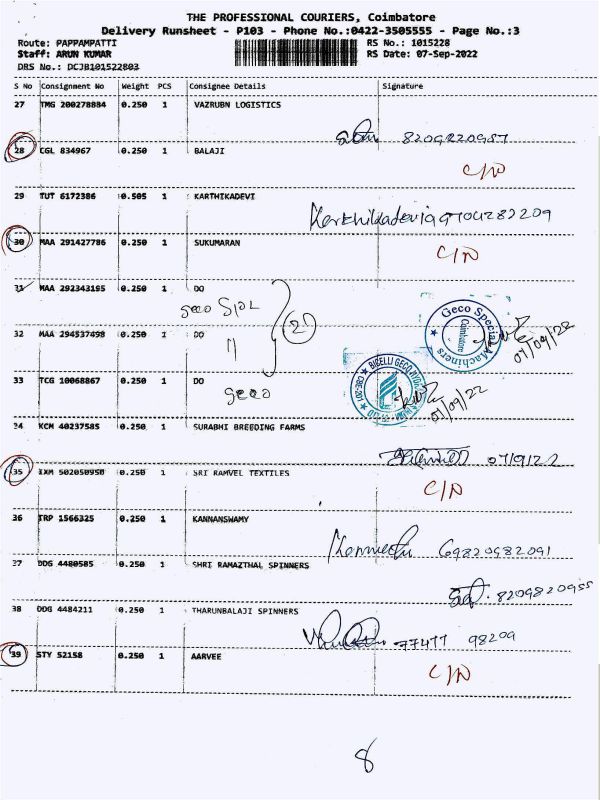 THE PROFESSIONAL COURIERS, Coimbatore
Delivery Runsheet - P103 - Phone No.:0422-3505555 - Page No.:3
Route: PAPPAMPATTI RS No.: 1015228
Staff: ARUN KUMAR RS Date: 07-Sep-2022
DRS No.: DCJB101522803
S No Consignment No Weight PCS Consignee Details Signature
27 TMG 200278884 0.250 1 VAZRUBN LOGISTICS
8209820957
28 CGL 834967 0.250 1 BALAJI
C/N
29 TUT 6172386 0.505 1 KARTHIKADEVI
30 MAA 291427786 0.250 1 SUKUMARAN
C/N
31 MAA 292343195 0.250 1 DO
geco
2
Geco Special Machiners
Coimbatore
07/09/22
32 MAA 294537498 0.250 1 DO
11
33 TCG 10068867 0.250 1 DO
geco
07/09/22
34 KCM 40237585 0.250 1 SURABHI BREEDING FARMS
07/9/22
35 IXM 502050950 0.250 1 SRI RAMVEL TEXTILES
C/N
36 TRP 1566325 0.250 1 KANNANSWAMY
37 DDG 4480585 0.250 1 SHRI RAMAZTHAL SPINNERS
8209820955
38 DDG 4484211 0.250 1 THARUNBALAJI SPINNERS
77477 98209
39 STY 52158 0.250 1 AARVEE
C/N
8